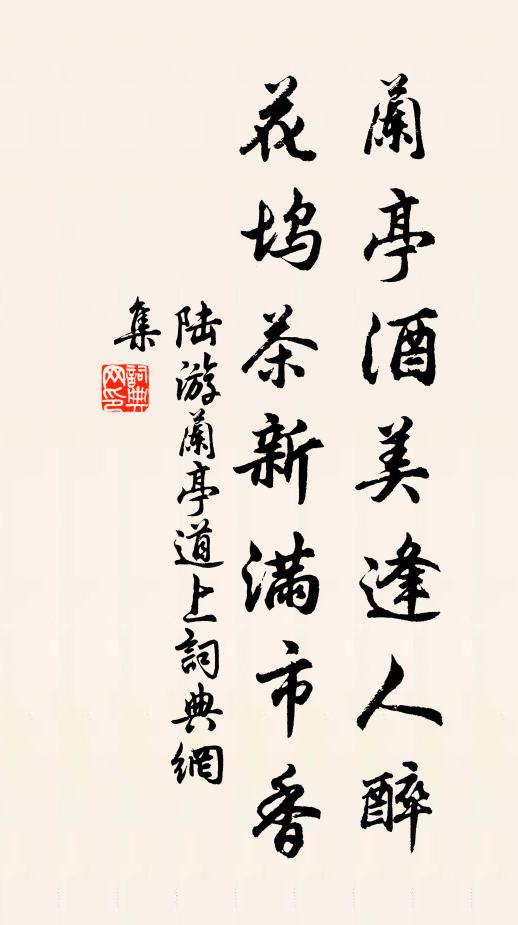 蘭亭酒美逢人醉
花塢茶新滿市香
陸游蘭亭道上詞典網
集
詞典
网印